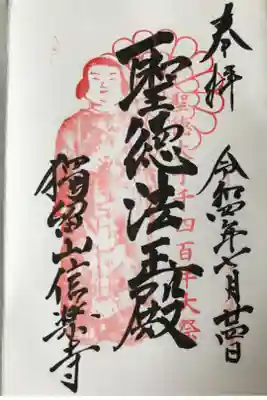 奉拝
令和四年七月廿四日
聖徳太子千四百年大祭
聖徳法王殿
山信楽寺